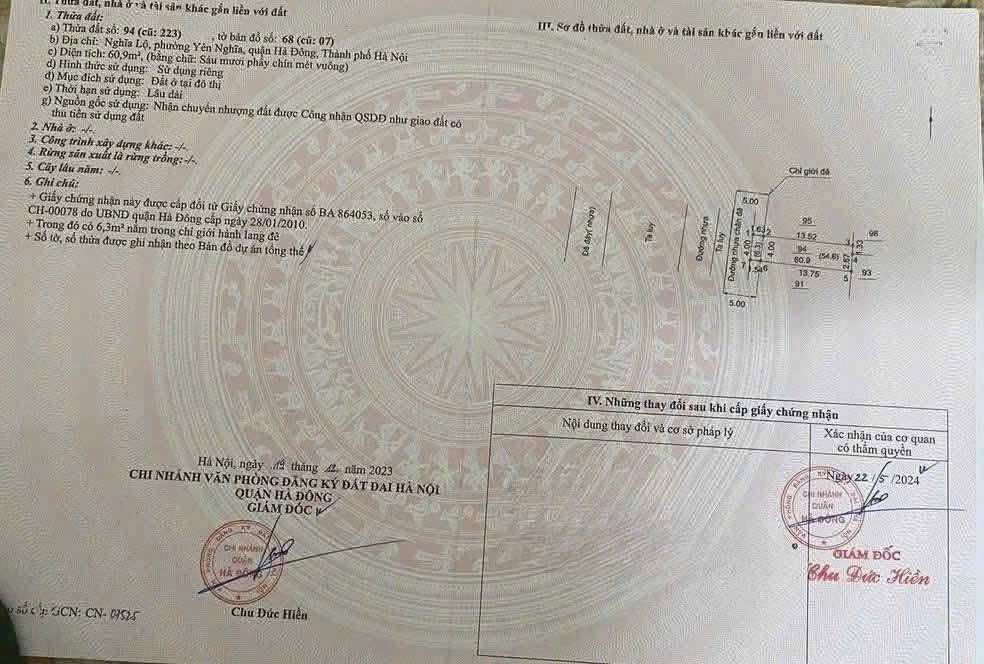 II. Thửa đất, nhà ở và tài sản khác gắn liền với đất
1. Thửa đất:
a) Thửa đất số: 94 (cũ: 223) , tờ bản đồ số: 68 (cũ: 07)
b) Địa chỉ: Nghĩa Lộ, phường Yên Nghĩa, quận Hà Đông, Thành phố Hà Nội
c) Diện tích: 60,9m², (bằng chữ: Sáu mươi phẩy chín mét vuông)
d) Hình thức sử dụng: Sử dụng riêng
đ) Mục đích sử dụng: Đất ở tại đô thị
e) Thời hạn sử dụng: Lâu dài
g) Nguồn gốc sử dụng: Nhận chuyển nhượng đất được Công nhận QSDĐ như giao đất có
thu tiền sử dụng đất
2. Nhà ở: -/-.
3. Công trình xây dựng khác: -/-.
4. Rừng sản xuất là rừng trồng: -/-.
5. Cây lâu năm: -/-.
6. Ghi chú:
+ Giấy chứng nhận này được cấp đổi từ Giấy chứng nhận số BA 864053, số vào sổ
CH-00078 do UBND quận Hà Đông cấp ngày 28/01/2010.
+ Trong đó có 6,3m² nằm trong chỉ giới hành lang đê
+ Số tờ, số thửa được ghi nhận theo Bản đồ dự án tổng thể
Hà Nội, ngày 19 tháng 12 năm 2023
CHI NHÁNH VĂN PHÒNG ĐĂNG KÝ ĐẤT ĐAI HÀ NỘI
QUẬN HÀ ĐÔNG
GIÁM ĐỐC
CHI NHÁNH
QUẬN
HÀ ĐÔNG
Chu Đức Hiền
số cấp GCN: CN-07525
III. Sơ đồ thửa đất, nhà ở và tài sản khác gắn liền với đất
Chỉ giới đê
Đê đáy( nhựa)
Ta luy
Đường nhựa
Ta luy
Đường nhựa chân đê
5.00
95
96
1
1.63
2
13.52
3
4.00
(6.3)
4.00
94
(54.6)
1.33
60.9
4
2.67
7
1.54
6
13.75
5
93
91
5.00
IV. Những thay đổi sau khi cấp giấy chứng nhận
Nội dung thay đổi và cơ sở pháp lý
Xác nhận của cơ quan
có thẩm quyền
Ngày 22/5/2024
CHI NHÁNH
QUẬN
HÀ ĐÔNG
GIÁM ĐỐC
Chu Đức Hiền